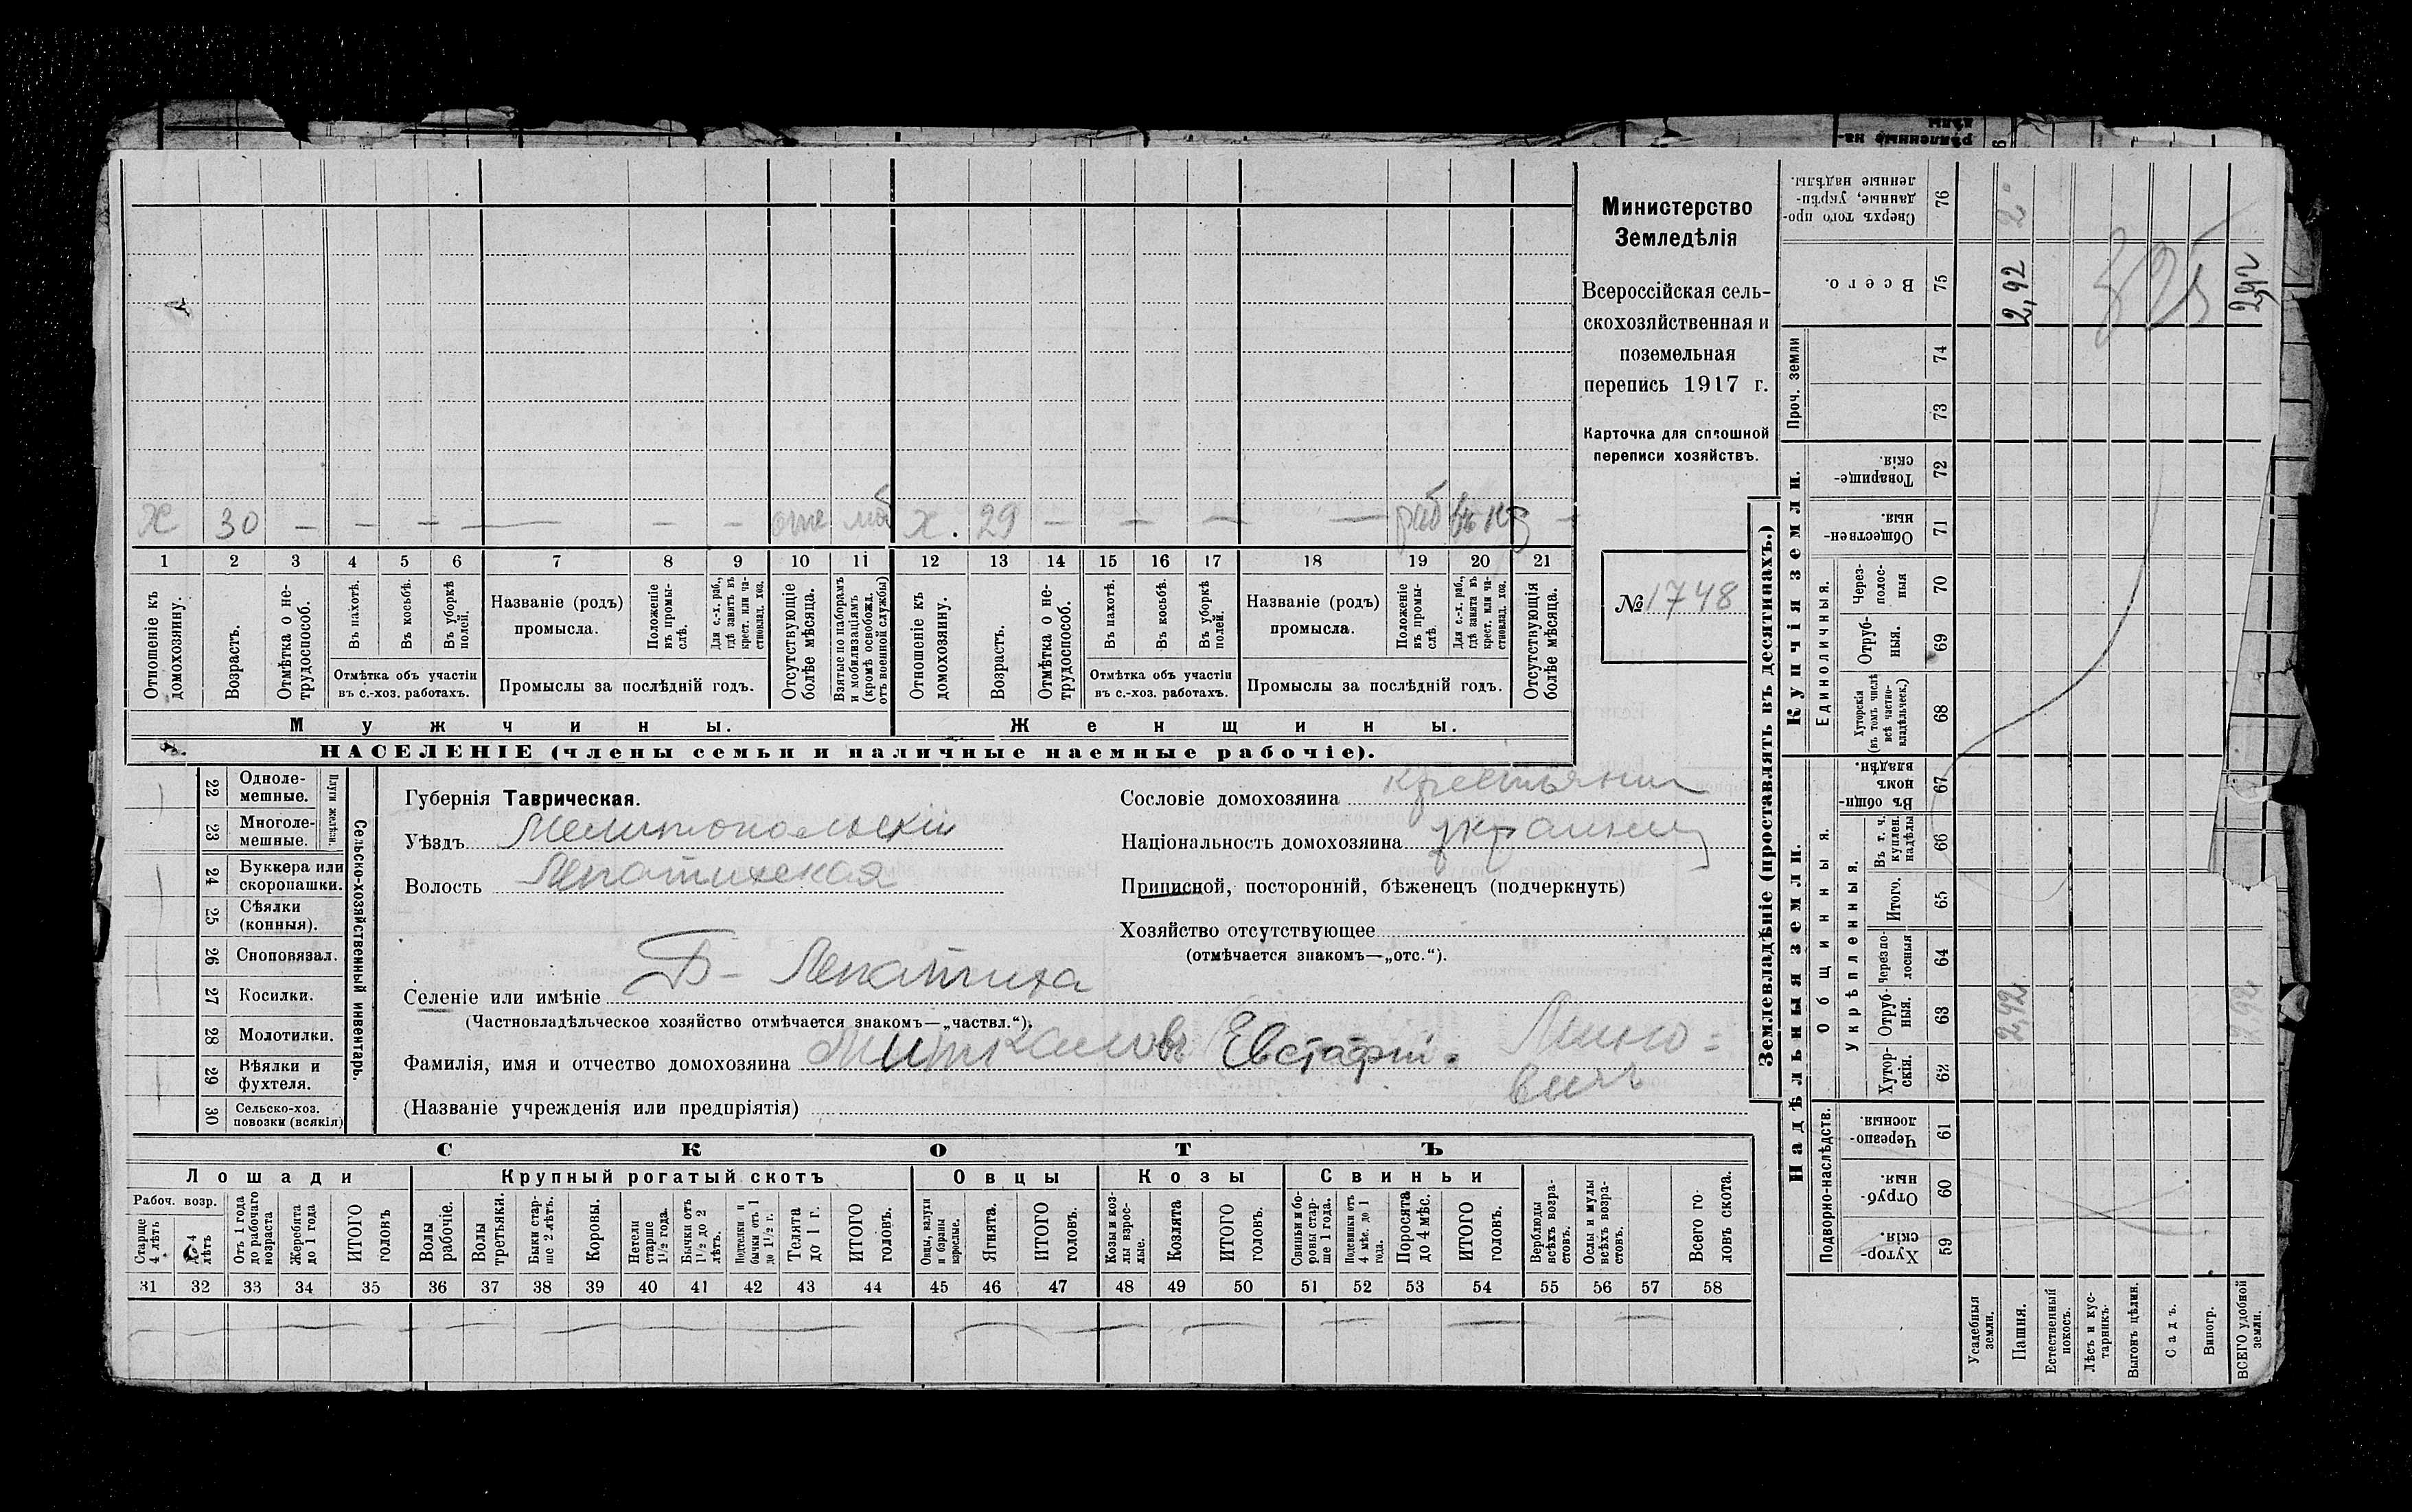 Министерство
Земледѣлія
Всероссійская сель-
скохозяйственная и
поземельная
перепись 1917 г.
Карточка для сплошной
переписи хозяйствъ.
№ 1748
х 30 — — — — — — отс моб х. 29 — — — — раб —
1 2 3 4 5 6 7 8 9 10 11 12 13 14 15 16 17 18 19 20 21
Отношеніе къ домохозяину.
Возрастъ.
Отмѣтка о не-трудоспособ.
Въ пахотѣ.
Въ косьбѣ.
Въ уборкѣ полей.
Отмѣтка объ участіи
въ с.-хоз. работахъ.
Названіе (родъ)
промысла.
Положеніе въ промы-слѣ.
Для с.-х. раб., гдѣ занятъ въ крест. или ча-стновлад. хоз.
Промыслы за послѣдній годъ.
Отсутствующіе болѣе мѣсяца.
Взятые по наборамъ и мобилизаціямъ (кромѣ освобожд. отъ военной службы)
Отношеніе къ домохозяину.
Возрастъ.
Отмѣтка о не-трудоспособ.
Въ пахотѣ.
Въ косьбѣ.
Въ уборкѣ полей.
Отмѣтка объ участіи
въ с.-хоз. работахъ.
Названіе (родъ)
промысла.
Положеніе въ промы-слѣ
Для с.-х. раб., гдѣ занята въ крест. или ча-стновлад. хоз.
Промыслы за послѣдній годъ.
Отсутствующія болѣе мѣсяца.
Мужчины.
Женщины.
НАСЕЛЕНІЕ (члены семьи и наличные наемные рабочіе).
Сельско-хозяйственный инвентарь.
Плуги желѣзн.
22 Одноле-мешные.
23 Многоле-мешные.
24 Буккера или скоропашки.
25 Сѣялки (конныя).
26 Сноповязал.
27 Косилки.
28 Молотилки.
29 Вѣялки и фухтеля.
30 Сельско-хоз. повозки (всякія)
Губернія Таврическая.
Уѣздъ Мелитопольскій
Волость Лепатихская
Селеніе или имѣніе Б- Лепатиха
(Частновладѣльческое хозяйство отмѣчается знакомъ—„частвл.“).
Фамилія, имя и отчество домохозяина Миткаловъ Евстафій
(Названіе учрежденія или предпріятія)
Сословіе домохозяина крестьянин
Національность домохозяина украинец
Приписной, посторонній, бѣженецъ (подчеркнуть)
Хозяйство отсутствующее
(отмѣчается знакомъ—„отс.“).
СКОТЪ
Лошади
Крупный рогатый скотъ
Овцы
Козы
Свиньи
Рабоч. возр.
Старше 4 лѣтъ
До 4 лѣтъ
Отъ 1 года до рабочаго возраста
Жеребята до 1 года
ИТОГО головъ
Волы рабочіе.
Волы третьяки.
Быки стар-ше 2 лѣтъ.
Коровы.
Нетели старше 1½ года.
Бычки отъ 1½ до 2 лѣтъ.
Подтелки и бычки отъ 1 до 1½ г.
Телята до 1 г.
ИТОГО головъ.
Овцы, валухи и бараны взрослые.
Ягнята.
ИТОГО головъ.
Козы и коз-лы взрос-лые.
Козлята
ИТОГО головъ.
Свиньи и бо-ровы стар-ше 1 года.
Подсвинки отъ 4 мѣс. до 1 года.
Поросята до 4 мѣс.
ИТОГО головъ.
Верблюды всѣхъ возра-стовъ.
Ослы и мулы всѣхъ возра-стовъ.
Всего го-ловъ скота.
31 32 33 34 35 36 37 38 39 40 41 42 43 44 45 46 47 48 49 50 51 52 53 54 55 56 57 58
Землевладѣніе (проставлять въ десятинахъ.)
Надѣльныя земли.
Купчія земли.
Проч. земли
Подворно-наслѣдств.
Общинныя.
Укрѣпленныя.
Единоличныя.
59 Хутор-скія.
60 Отруб-ныя.
61 Черезпо-лосныя
62 Хутор-скія.
63 Отруб-ныя.
64 Черезпо-лосныя
65 Итого.
66 Въ т. ч. куплен. надѣлы
67 Въ общи-номъ владѣн.
68 Хуторскія (въ томъ числѣ всѣ частно-владѣльческ.)
69 Отруб-ныя.
70 Через-полос-ныя
71 Обществен-ныя.
72 Товарище-скія.
73
74
75 Всего.
76 Сверхъ того про-данные, укрѣп-ленные надѣлы.
Усадебныя земли.
Пашня.
2,92
2,92
2
Естественный покосъ.
Лѣсъ и кус-тарникъ.
Выгонъ цѣлин.
Садъ.
Виногр.
ВСЕГО удобной земли.
2,92
2,92